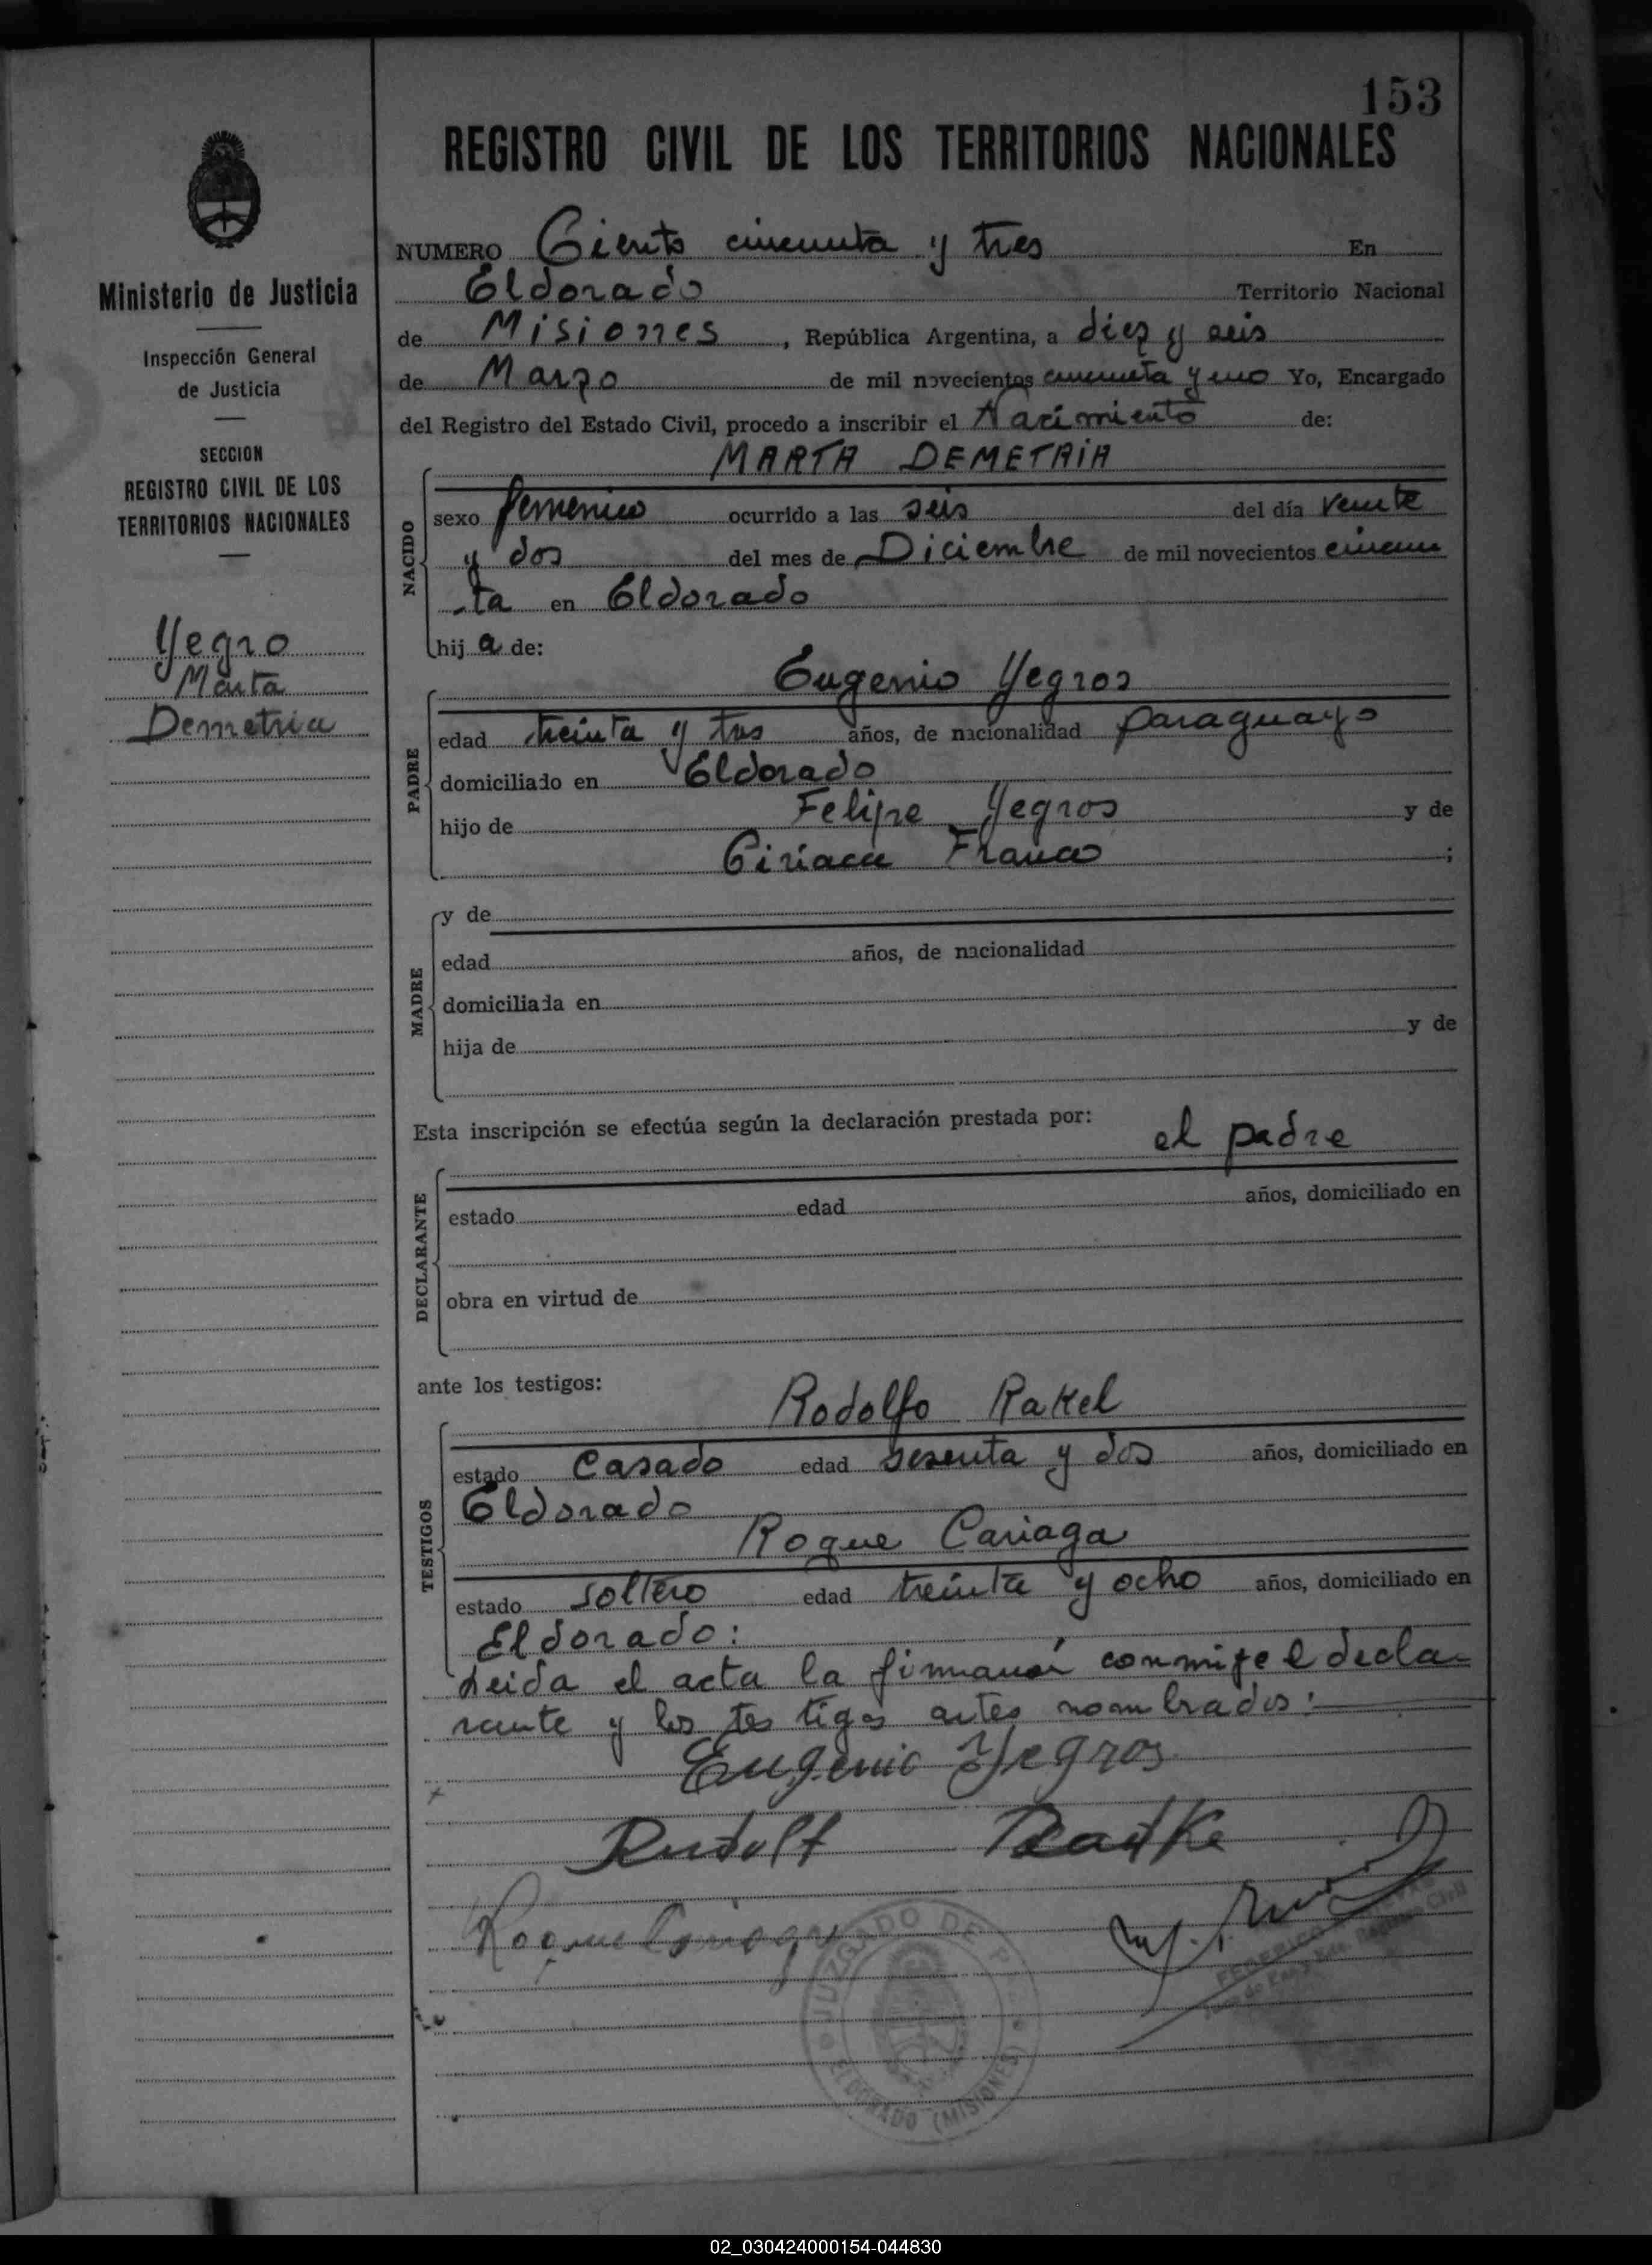 153
REGISTRO CIVIL DE LOS TERRITORIOS NACIONALES
Ministerio de Justicia
Inspección General
de Justicia
SECCION
REGISTRO CIVIL DE LOS
TERRITORIOS NACIONALES
Yegro
Marta
Demetria
NUMERO Ciento cincuenta y tres En
Eldorado Territorio Nacional
de Misiones, República Argentina, a diez y seis
de Marzo de mil novecientos cincuenta y uno Yo, Encargado
del Registro del Estado Civil, procedo a inscribir el Nacimiento de:
MARTA DEMETRIA
NACIDO
sexo femenino ocurrido a las seis del día veinte
y dos del mes de Diciembre de mil novecientos cincuen
-ta en Eldorado
hij a de:
Eugenio Yegros
PADRE
edad treinta y tres años, de nacionalidad paraguayo
domiciliado en Eldorado
hijo de Felipe Yegros y de
Ciriaca Franco ;
MADRE
y de
edad años, de nacionalidad
domiciliada en
hija de y de
Esta inscripción se efectúa según la declaración prestada por: el padre
DECLARANTE
estado edad años, domiciliado en
obra en virtud de
ante los testigos:
Rodolfo Rakel
TESTIGOS
estado Casado edad sesenta y dos años, domiciliado en
Eldorado
Roque Cariaga
estado soltero edad treinta y ocho años, domiciliado en
Eldorado:
Leida el acta la firmaron conmigo el decla-
rante y los testigos antes nombrados:
Eugenio Yegros
Rudolf Radtke
Roque Cariaga
JUZGADO DE PAZ
ELDORADO (MISIONES)
FEDERICO
Registro Civil
02_030424000154-044830